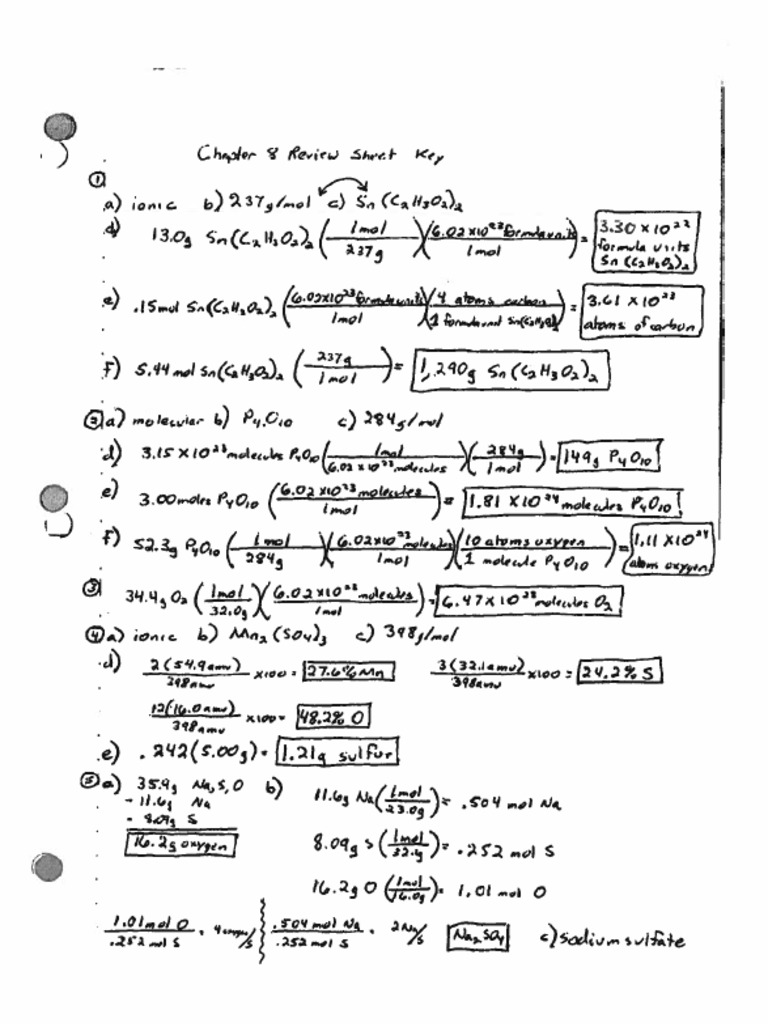 Chapter 8 Review Sheet Key
①
a) ionic b) 237g/mol c) Sn(C₂H₃O₂)₂
d) 13.0g Sn(C₂H₃O₂)₂ (1mol/237g)(6.02x10²³ formula units/1mol) = 3.30 x 10²² formula units Sn(C₂H₃O₂)₂
e) .15mol Sn(C₂H₃O₂)₂ (6.02x10²³ formula units/1mol)(4 atoms carbon/1 formula unit Sn(C₂H₃O₂)₂) = 3.61 x 10²³ atoms of carbon
f) 5.44 mol Sn(C₂H₃O₂)₂ (237g/1mol) = 1,290g Sn(C₂H₃O₂)₂
② a) molecular b) P₄O₁₀ c) 284g/mol
d) 3.15 x 10²³ molecules P₄O₁₀ (1mol/6.02 x 10²³ molecules)(284g/1mol) = 149g P₄O₁₀
e) 3.00 moles P₄O₁₀ (6.02 x10²³ molecules/1mol) = 1.81 x 10²⁴ molecules P₄O₁₀
f) 52.3g P₄O₁₀ (1mol/284g)(6.02x10²³ molecules/1mol)(10 atoms oxygen/1 molecule P₄O₁₀) = 1.11 x10²⁴ atoms oxygen
③ 34.4g O₂ (1mol/32.0g)(6.02x10²³ molecules/1mol) = 6.47 x 10²³ molecules O₂
④ a) ionic b) Mn₂(SO₄)₃ c) 398g/mol
d) 2(54.9amu)/398amu x100 = 27.6% Mn 3(32.1amu)/398amu x100 = 24.2% S
12(16.0amu)/398amu x100 = 48.2% O
e) .242(5.00g) = 1.21g sulfur
⑤ a) 35.9g Na,S,O b) 11.6g Na (1mol/23.0g) = .504 mol Na
- 11.6g Na
- 8.09g S 8.09g S (1mol/32.1g) = .252 mol S
16.2g oxygen
16.2g O (1mol/16.0g) = 1.01 mol O
1.01mol O/.252 mol S = 4 oxygen/S .504 mol Na/.252 mol S = 2Na/S Na₂SO₄ c) sodium sulfate